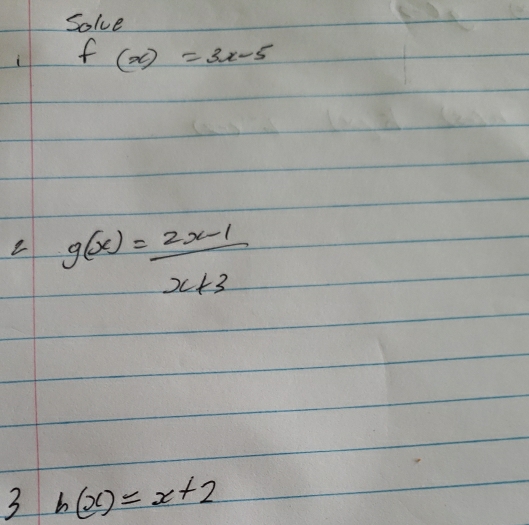 Solve
1 f (x) = 3x-5
2 g(x) = 2x-1
x+3
3 h(x) = x+2